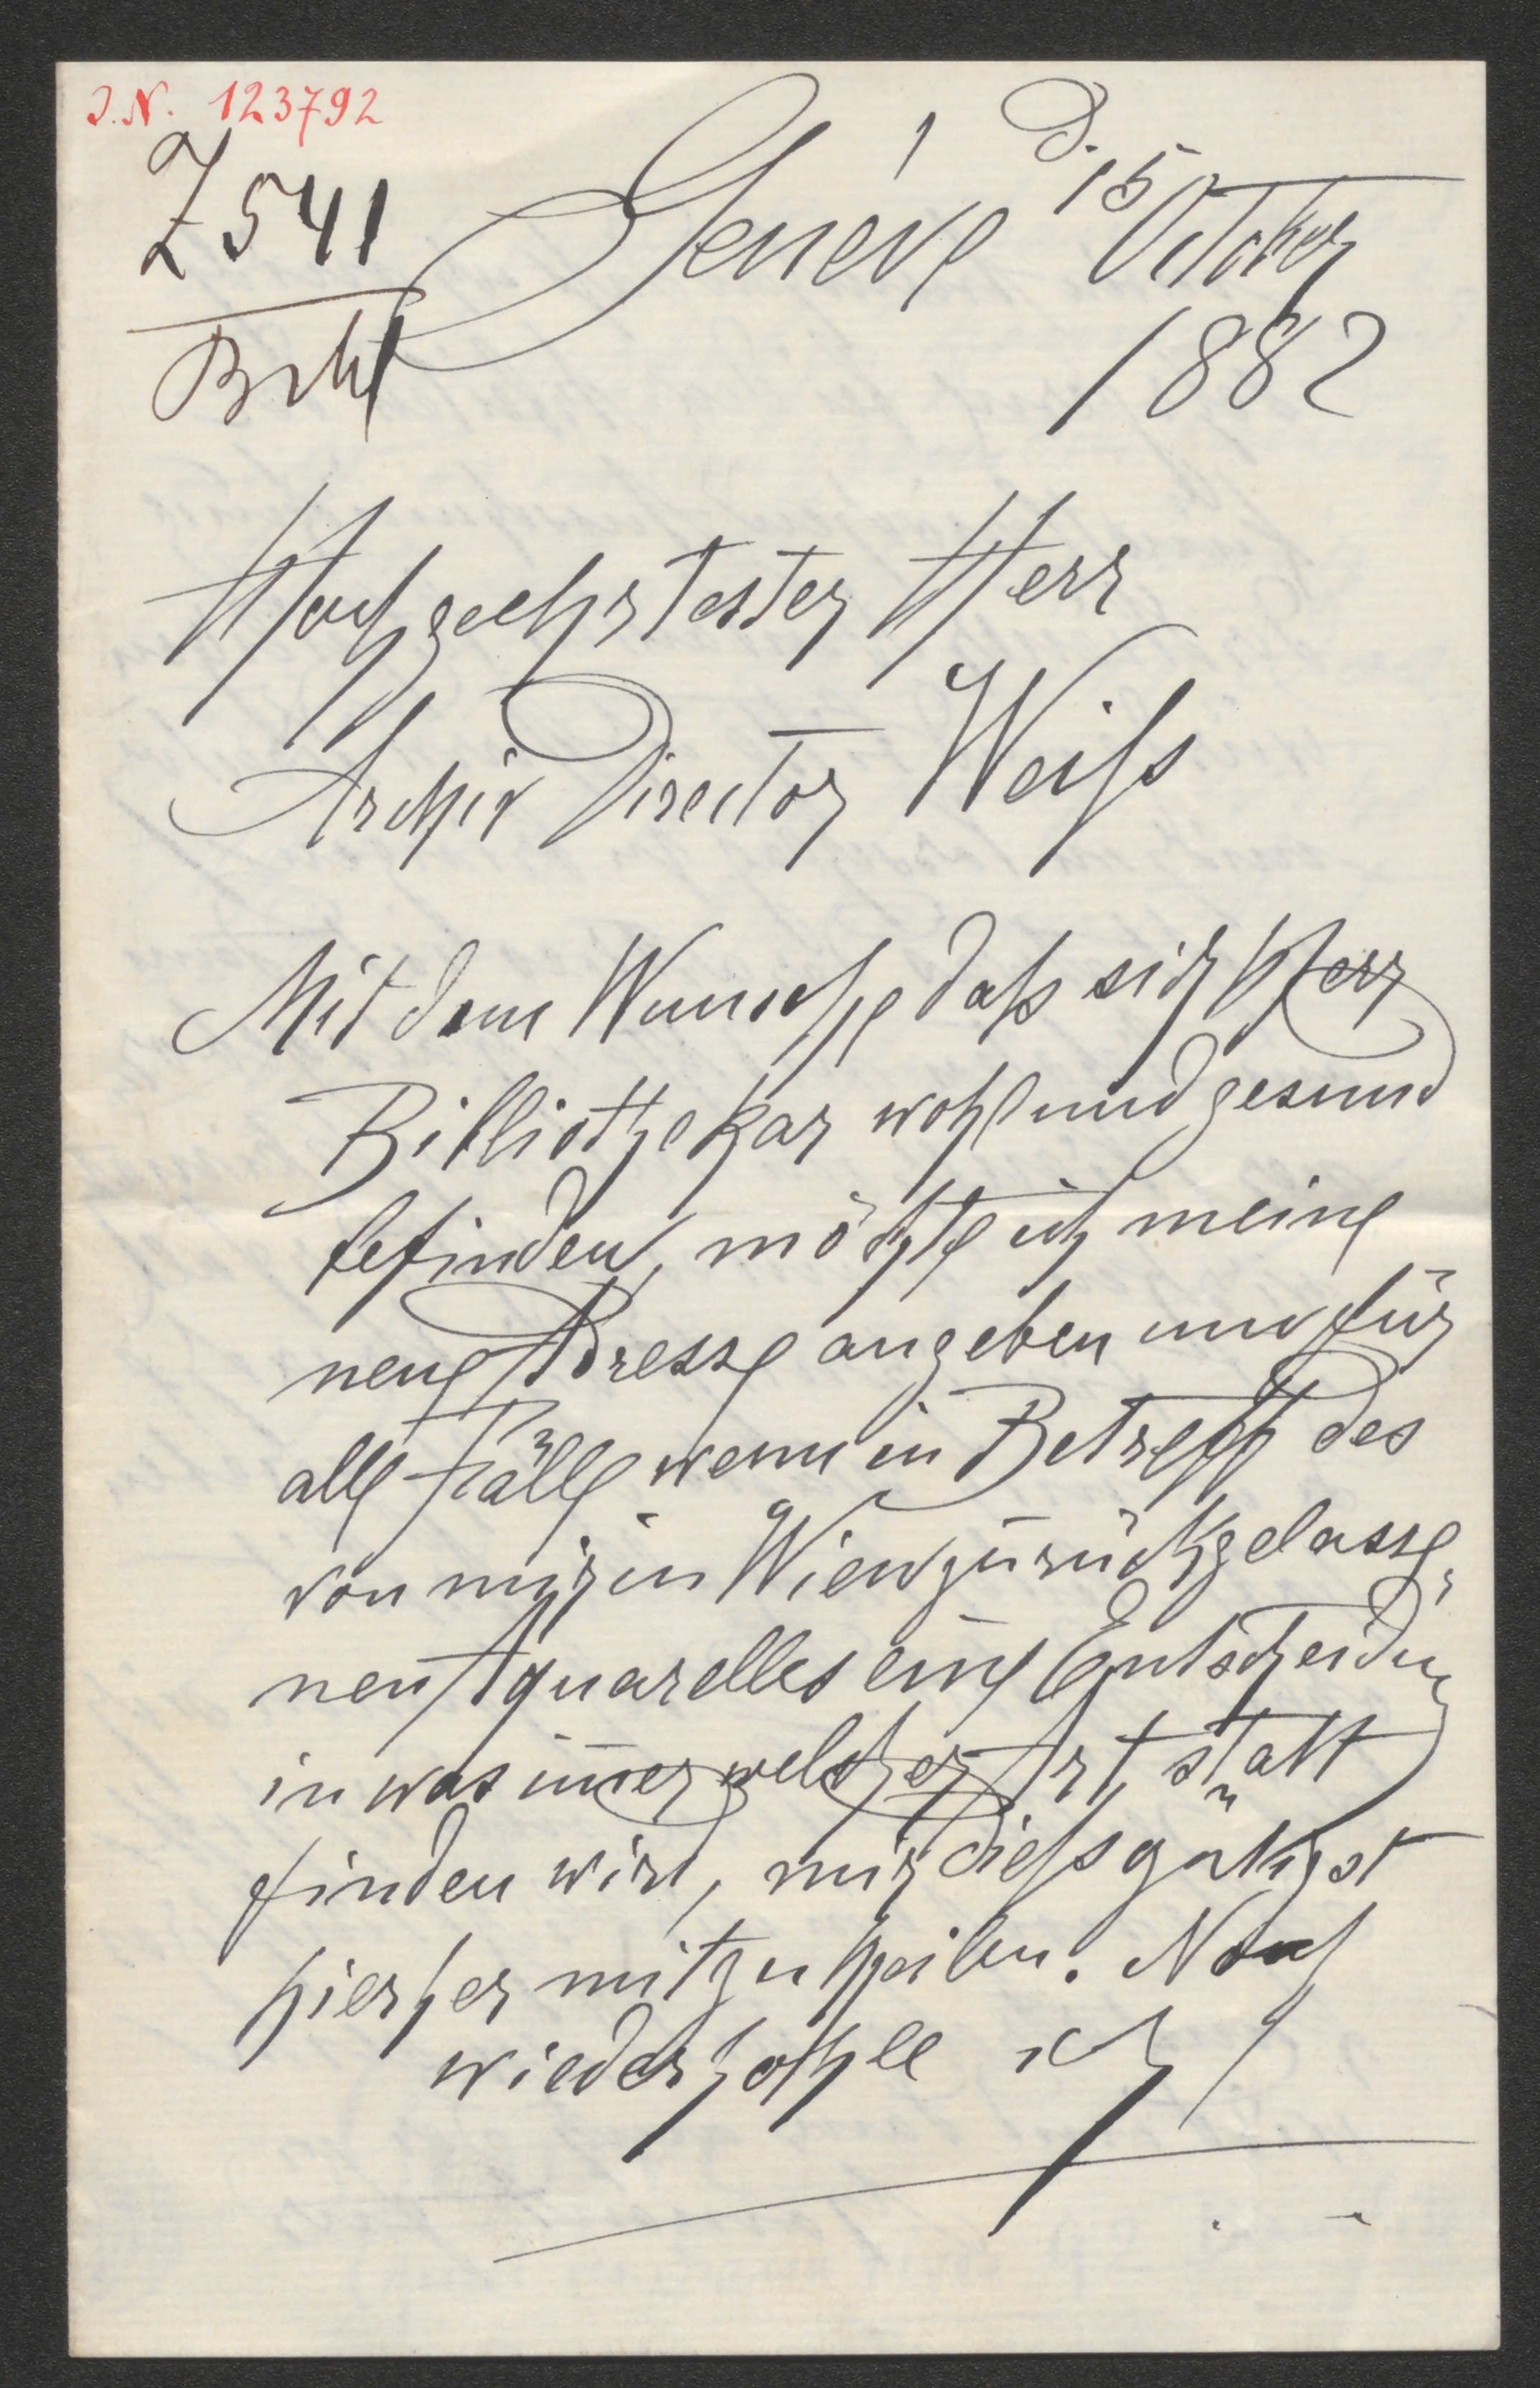 I.N. 123792
Z 541
Genéve d. 15 October
1882
Hochgeehrtester Herr
Archiv Director Weiſs
Mit dem Wunsche daſs sich Herr
Bibliothekar wohl und gesund
befinden, möchte ich meine
neue Adresse angeben und für
alle Fälle wenn in Betreff des
von mir in Wien zurückgelasse,
nen Aquarelles eine Entscheidung
in was im̅er welcher Art statt
finden wird, mir dieſs gütigst
hierher mitzutheilen. Noch
wiederhohlle ich